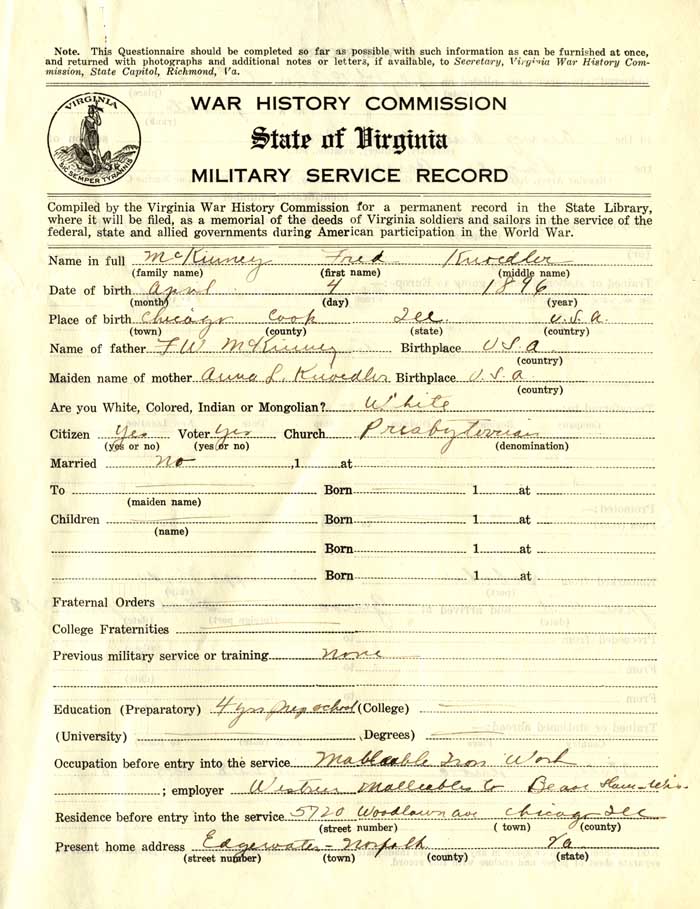 Note. This Questionnaire should be completed so far as possible with such information as can be furnished at once,
and returned with photographs and additional notes or letters, if available, to Secretary, Virginia War History Com-
mission, State Capitol, Richmond, Va.
VIRGINIA
SIC SEMPER TYRANNIS
WAR HISTORY COMMISSION
State of Virginia
MILITARY SERVICE RECORD
Compiled by the Virginia War History Commission for a permanent record in the State Library,
where it will be filed, as a memorial of the deeds of Virginia soldiers and sailors in the service of the
federal, state and allied governments during American participation in the World War.
Name in full McKinney Fred Knoedler
(family name) (first name) (middle name)
Date of birth April 4 1896
(month) (day) (year)
Place of birth Chicago Cook Ill U.S.A.
(town) (county) (state) (country)
Name of father F W McKinney Birthplace U S A
(country)
Maiden name of mother Anna L. Knoedler Birthplace U.S.A
(country)
Are you White, Colored, Indian or Mongolian? White
Citizen Yes Voter Yes Church Presbyterian
(yes or no) (yes or no) (denomination)
Married no ,1 at
To Born 1 at
(maiden name)
Children Born 1 at
(name)
Born 1 at
Born 1 at
Fraternal Orders
College Fraternities
Previous military service or training none
Education (Preparatory) 4 yrs prep school (College)
(University) , Degrees)
Occupation before entry into the service Malleable Iron Work
; employer Malleable Co
Residence before entry into the service 5720 Woodlawn ave Chicago Ill
(street number) ( town) (county)
Present home address Edgewater - Norfolk Va
(street number) (town) (county) (state)